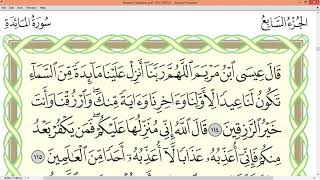 الجزء السابع سورة المائدة
قَالَ عِيسَى ٱبۡنُ مَرۡيَمَ ٱللَّهُمَّ رَبَّنَآ أَنزِلۡ عَلَيۡنَا مَآئِدَةٗ مِّنَ ٱلسَّمَآءِ
تَكُونُ لَنَا عِيدٗا لِّأَوَّلِنَا وَءَاخِرِنَا وَءَايَةٗ مِّنكَۖ وَٱرۡزُقۡنَا وَأَنتَ
خَيۡرُ ٱلرَّٰزِقِينَ ١١٤ قَالَ ٱللَّهُ إِنِّي مُنَزِّلُهَا عَلَيۡكُمۡۖ فَمَن يَكۡفُرۡ بَعۡدُ
مِنكُمۡ فَإِنِّيٓ أُعَذِّبُهُۥ عَذَابٗا لَّآ أُعَذِّبُهُۥٓ أَحَدٗا مِّنَ ٱلۡعَٰلَمِينَ ١١٥